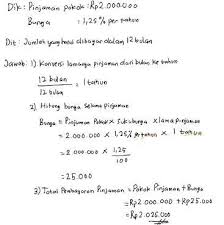 Dik: Pinjaman Pokok: Rp2.000.000
Bunga = 1,25% per tahun
Dit: Jumlah yang harus dibayar dalam 12 bulan
Jawab: 1) Konversi lamanya pinjaman dari bulan ke tahun
12 bulan
12 bulan
= 1 tahun
2) Hitung bunga selama pinjaman
Bunga = Pinjaman Pokok x Suku bunga x lama pinjaman
= 2.000.000 x 1,25% per tahun x 1 tahun
= 2.000.000 x 1,25
100
= 25.000
3) Total Pembayaran Pinjaman = Pokok Pinjaman + Bunga
= Rp2.000.000 + Rp25.000
= Rp2.025.000